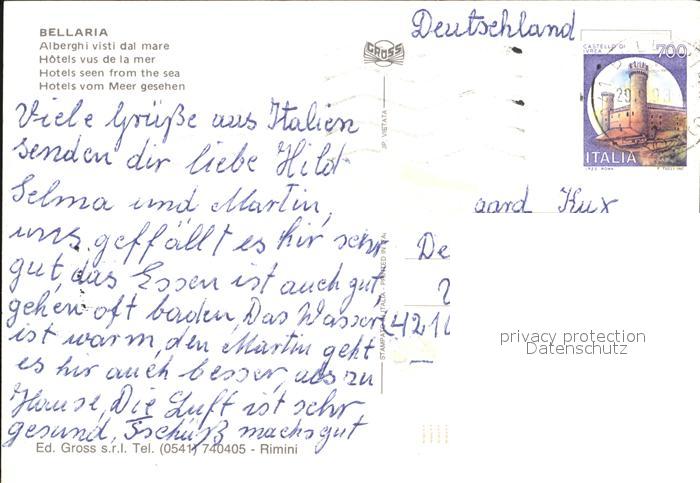 BELLARIA
Alberghi visti dal mare
Hôtels vus de la mer
Hotels seen from the sea
Hotels vom Meer gesehen
Viele Grüße aus Italien
senden dir liebe Hild
Selma und Martin,
uns geffällt es hir sehr
gut, das Essen ist auch gut,
gehen oft baden, Das Wasser
ist warm, den Martin geht
es hir auch besser, als zu
Hause, Die Luft ist sehr
gesund, Tschüß machs gut
Ed. Gross s.r.l. Tel. (0541) 740405 - Rimini
GROSS
Deutschland
CASTELLO DI
IVREA
700
ITALIA
aard Kux
De
4210
privacy protection
Datenschutz